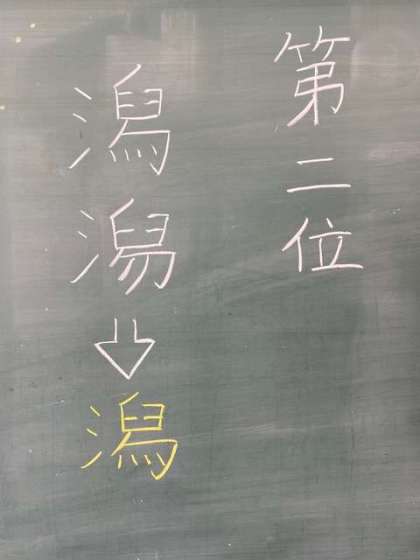 第二位
潟潟⇩潟